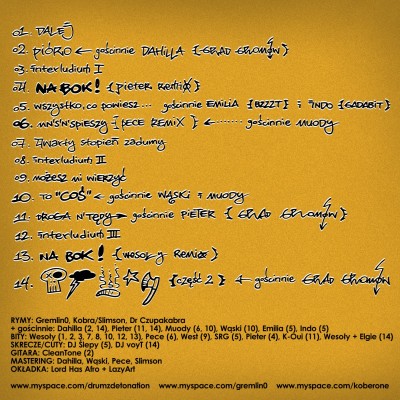 01. DALEJ
02. PIÓRO ← gościnnie DAHILLA {GRAD GROMÓW}
03. interludium I
04. NA BOK! {PIETER REMIX}
05. wszystko, co powiesz... gościnnie EMILIA {BZZZT} i INDO {GADABIT}
06. MN'S'N'SPIESZY {PECE REMIX} ← gościnnie MUODY
07. czwarty stopień zadumy
08. interludium II
09. możesz mi wierzyć
10. TO "COŚ" ← gościnnie WĄSKI i MUODY
11. DROGA N'TĘDY → gościnnie PIETER {GRAD GROMÓW}
12. interludium III
13. NA BOK! {wesoły Remix}
14. {CZĘŚĆ 2} ← gościnnie GRAD GROMÓW
RYMY: Gremlin0, Kobra/Slimson, Dr Czupakabra
+ gościnnie: Dahilla (2, 14), Pieter (11, 14), Muody (6, 10), Wąski (10), Emilia (5), Indo (5)
BITY: Wesoły (1, 2, 3, 7, 8, 10, 12, 13), Pece (6), West (9), SRG (5), Pieter (4), K-Oui (11), Wesoły + Elgie (14)
SKRECZE/CUTY: DJ Ślepy (5), DJ voyT (14)
GITARA: CleanTone (2)
MASTERING: Dahilla, Wąski, Pece, Slimson
OKŁADKA: Lord Has Afro + LazyArt
www.myspace.com/drumzdetonation www.myspace.com/gremlin0 www.myspace.com/koberone